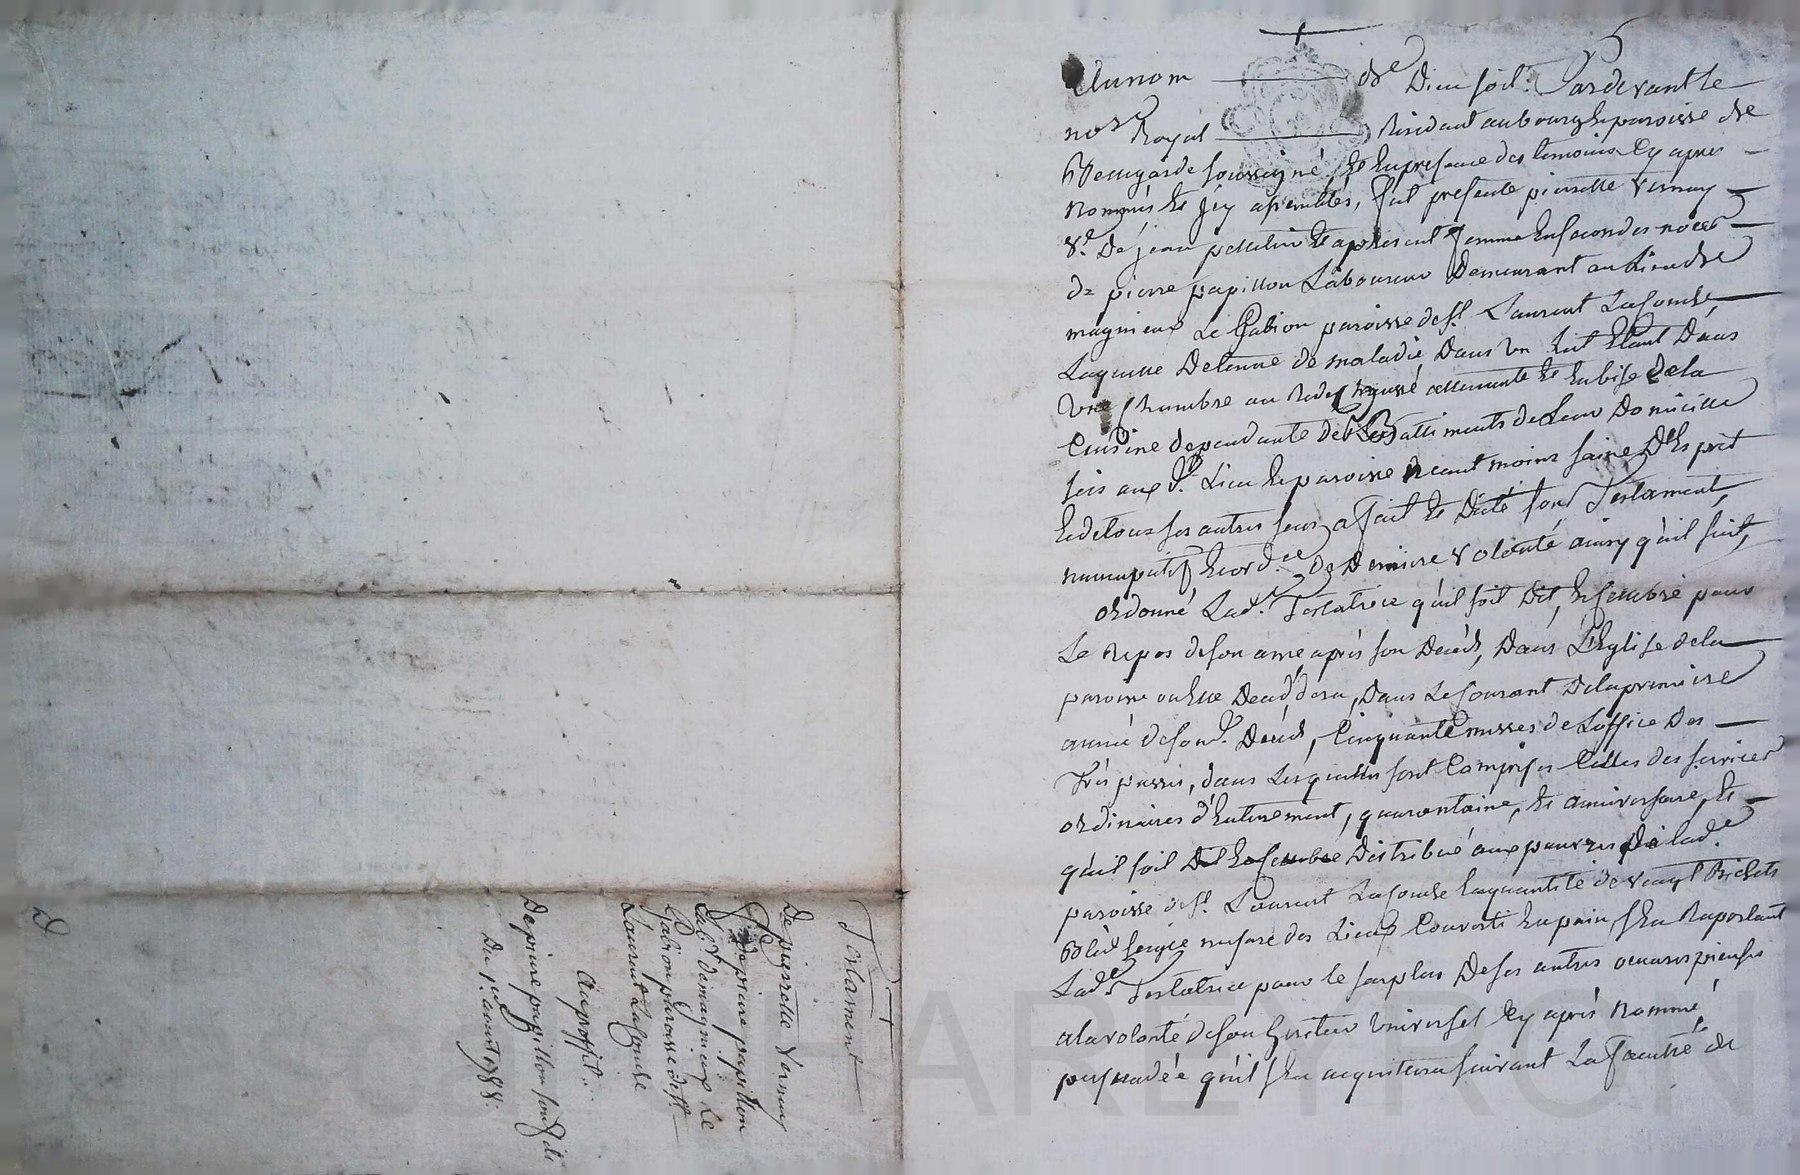 Au nom de Dieu soit: Pardevant le
no.re Royal Residant au bourg & paroisse de
soussigné, & en presence des temoins cy apres
nommés & icy assemblés, fut presente pierrette Vernay
v.e De jean & apresent femme en secondes noces
de pierre papillon Laboureur Demeurant au Lieu de
magnieux Le Gabion paroisse de S.t Laurent Laconche,
Laquelle Detenue de maladie Dans un Lit Etant Dans
une chambre au Rez de chaussé attenante & en bise de la
Cuisine dependante des Battiments de Leur Domicille
sçis aux d.t Lieu & paroisse neantmoins saine D'Esprit
& de tous ses autres sens, a fait & Dicté son Testament
nuncupatif & ord.ce De Derniere volonté ainsy qu'il suit,
ordonne Lad.e Testatrice qu'il soit Dit, & celebré pour
Le Repos de son ame après son Decès, Dans L'Eglise de la
paroisse ou Elle Decedera, Dans Le Courant De la premiere
année de sond. Decès, Cinquante messes de L'office Des
Trépassés, dans Lesquelles sont Comprises Celles des services
ordinaires d'Enterrement, quarantaine, & anniversaire, &
qu'il soit Dit & celebré Distribué aux pauvres de lad.e
paroisse de S.t Laurent Laconche La quantité de vingt Bichets
Bled seigle mesure des Lieux Convertis en pain, s'En Raportant
Lad.e Testatrice pour le surplus De ses autres oeuvres pieuses
a la volonté de son heritier universel Cy après nommé,
persuadée qu'il s'En acquittera suivant La faculté de
Testament
De pierrette Vernay
f.e de pierre papillon
Lab.r de magnieux Le
Gabion paroisse de S.t
Laurent Laconche
Au proffit..
De pierre papillon son
Du 1.er aoust 1788.